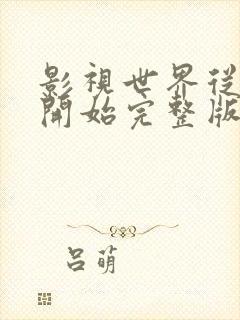 影視世界從
開始完整版
呂萌